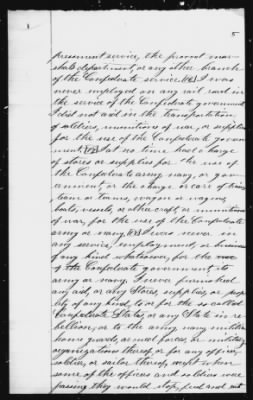 5
pressment service, the provost mar-
shals department, or any other branch
of the Confederate service. I was
never employed on any rail road in
the service of the Confederate government
I did not aid in the Transportation
of soldiers, munitions of war, or supplies
for the use of the Confederate govern-
ment. I at no time had charge
of stores or supplies for the use of
the Confederate army navy, or gov-
ernment, or the charge or care of trains
teams or wagons
boats, vessels, or other craft, or munitions
of war, for the use of the Confederate
army or navy. I was never in
any service, employment, or business
of any kind whatsoever, for the use
of the Confederate government, its
army or navy. I never furnished
any aid, or any stores, supplies, or prop-
erty of any kind, to or for the so called
Confederate States, or any State in re-
bellion, or to the army navy militia
home guards, armed forces, or military
organizations thereof, or for any officer,
soldier, or sailor thereof, except when
some of the officers and soldiers were
passing they would stop, feed and eat